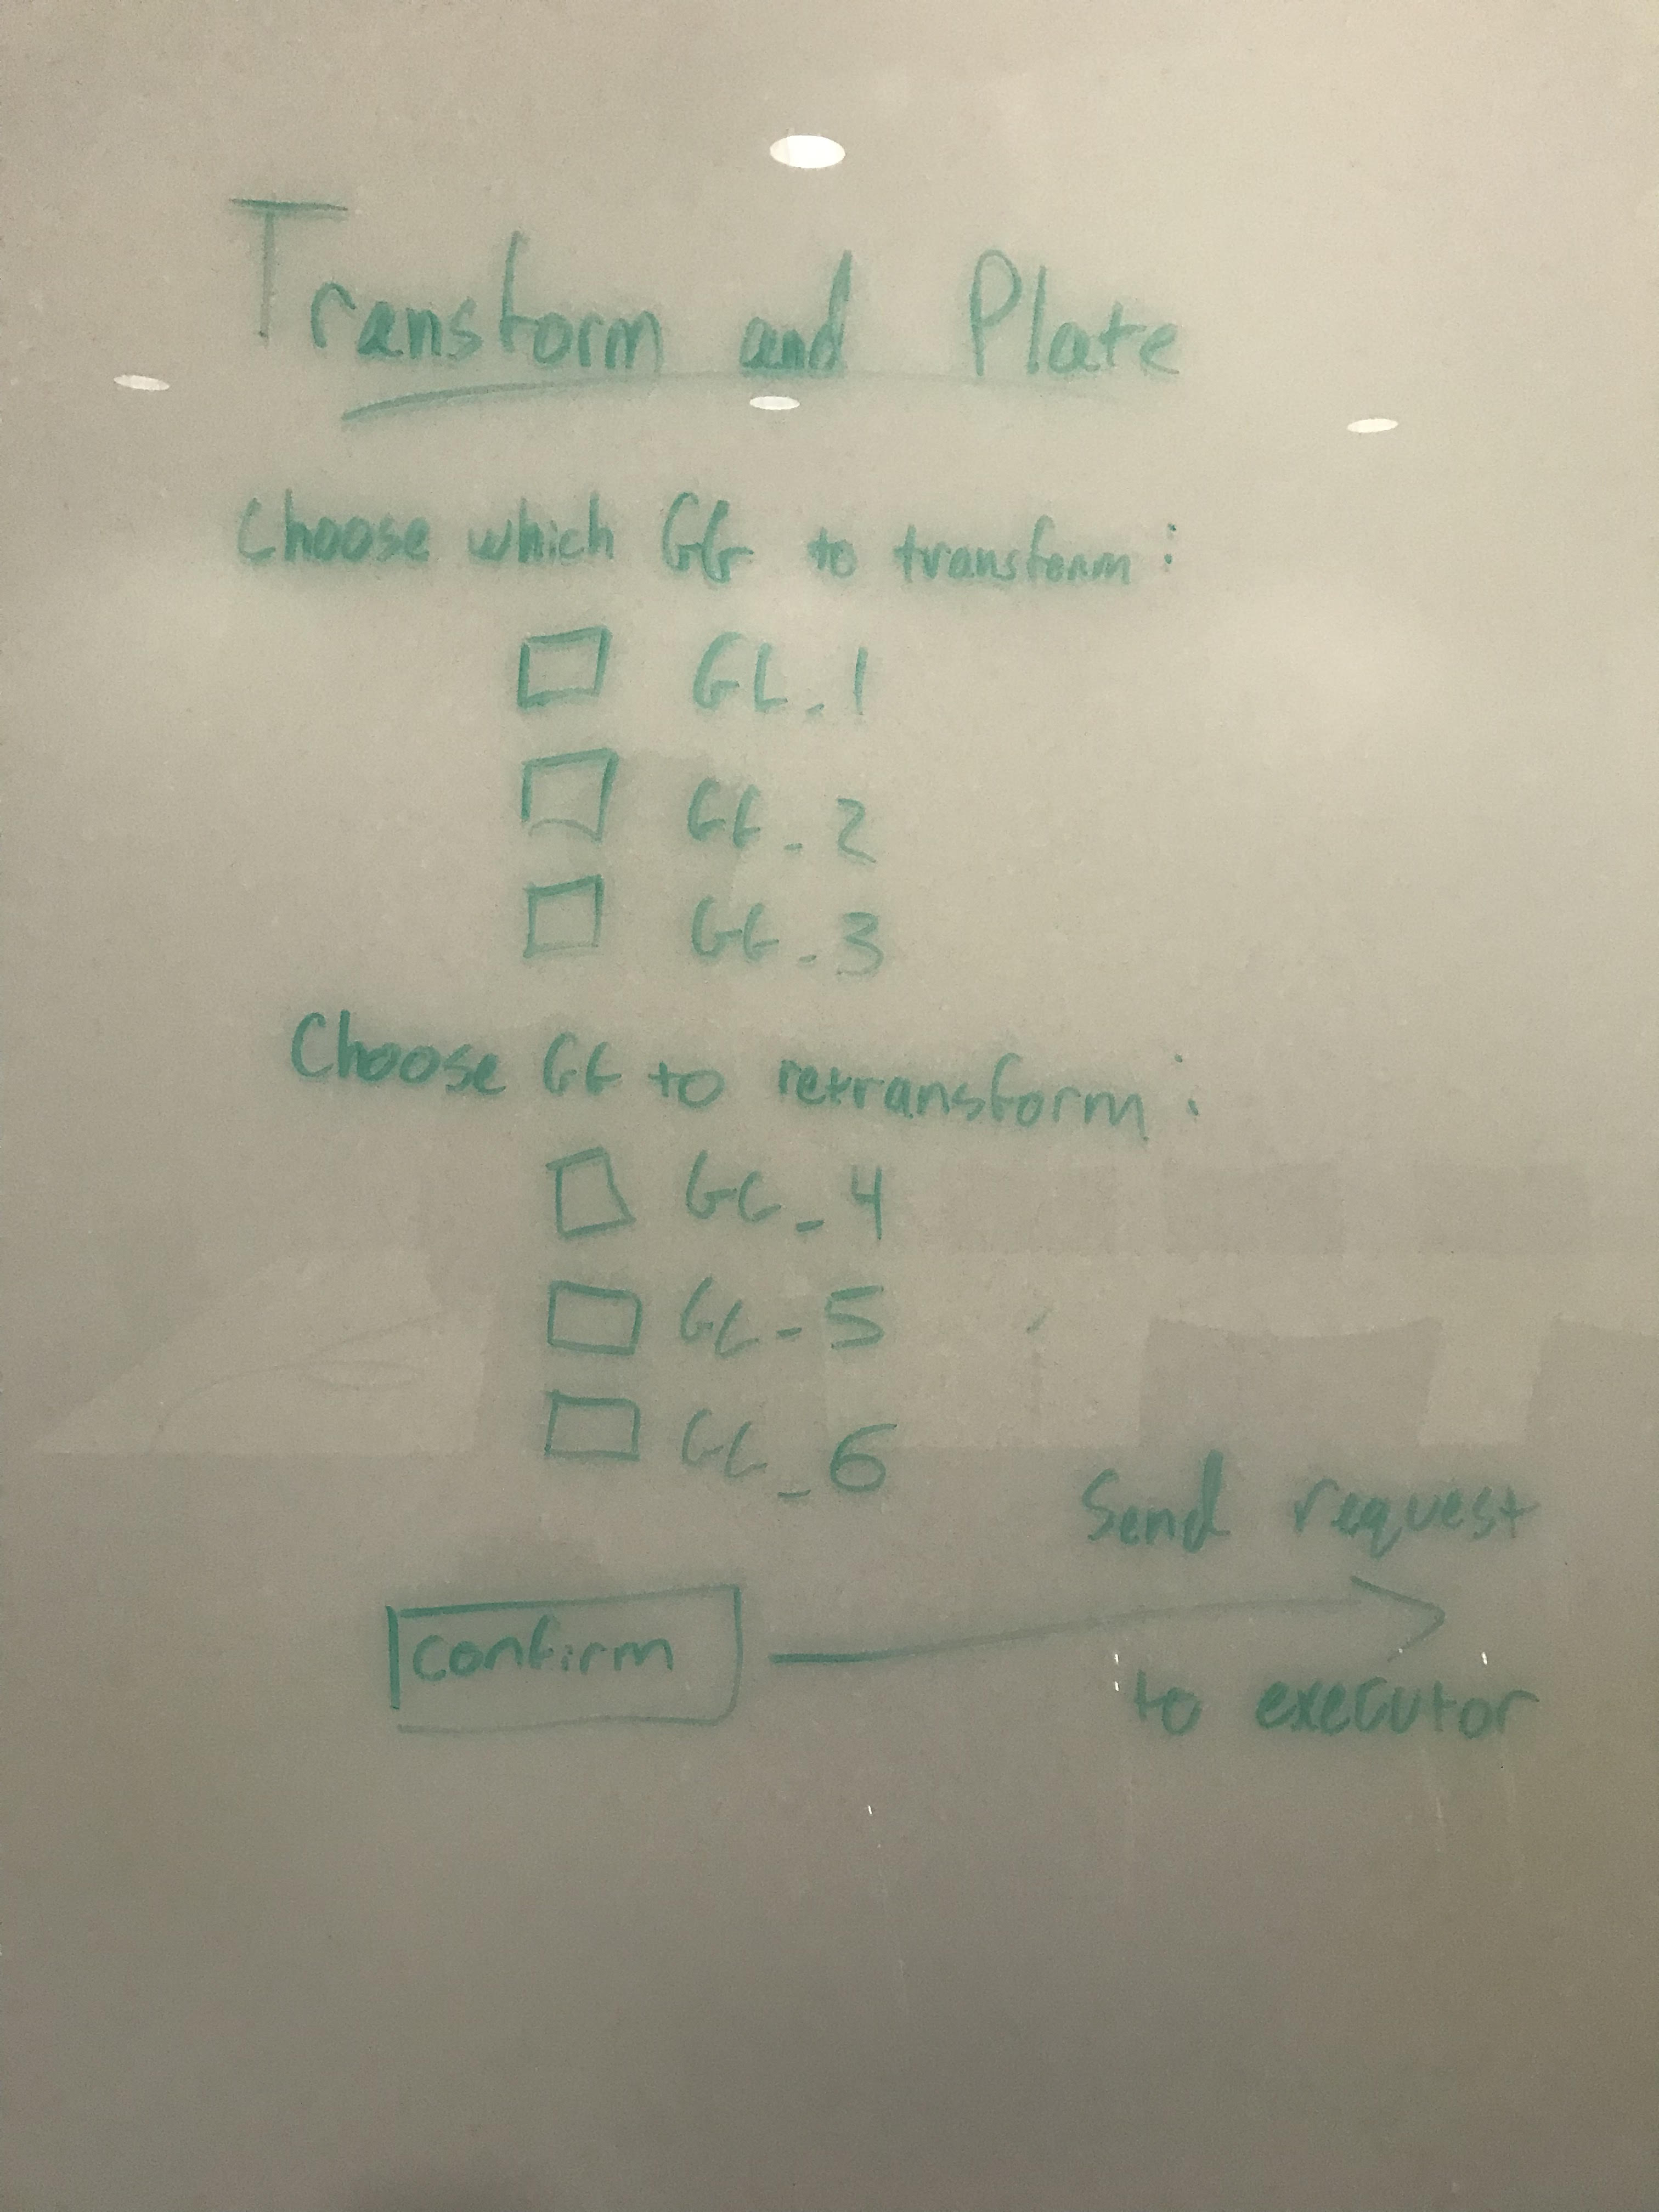 Transform and Plate
Choose which GG to transform:
GG_1
GG_2
GG_3
Choose GG to retransform:
GG_4
GG_5
GG_6
Send request
confirm
to executor